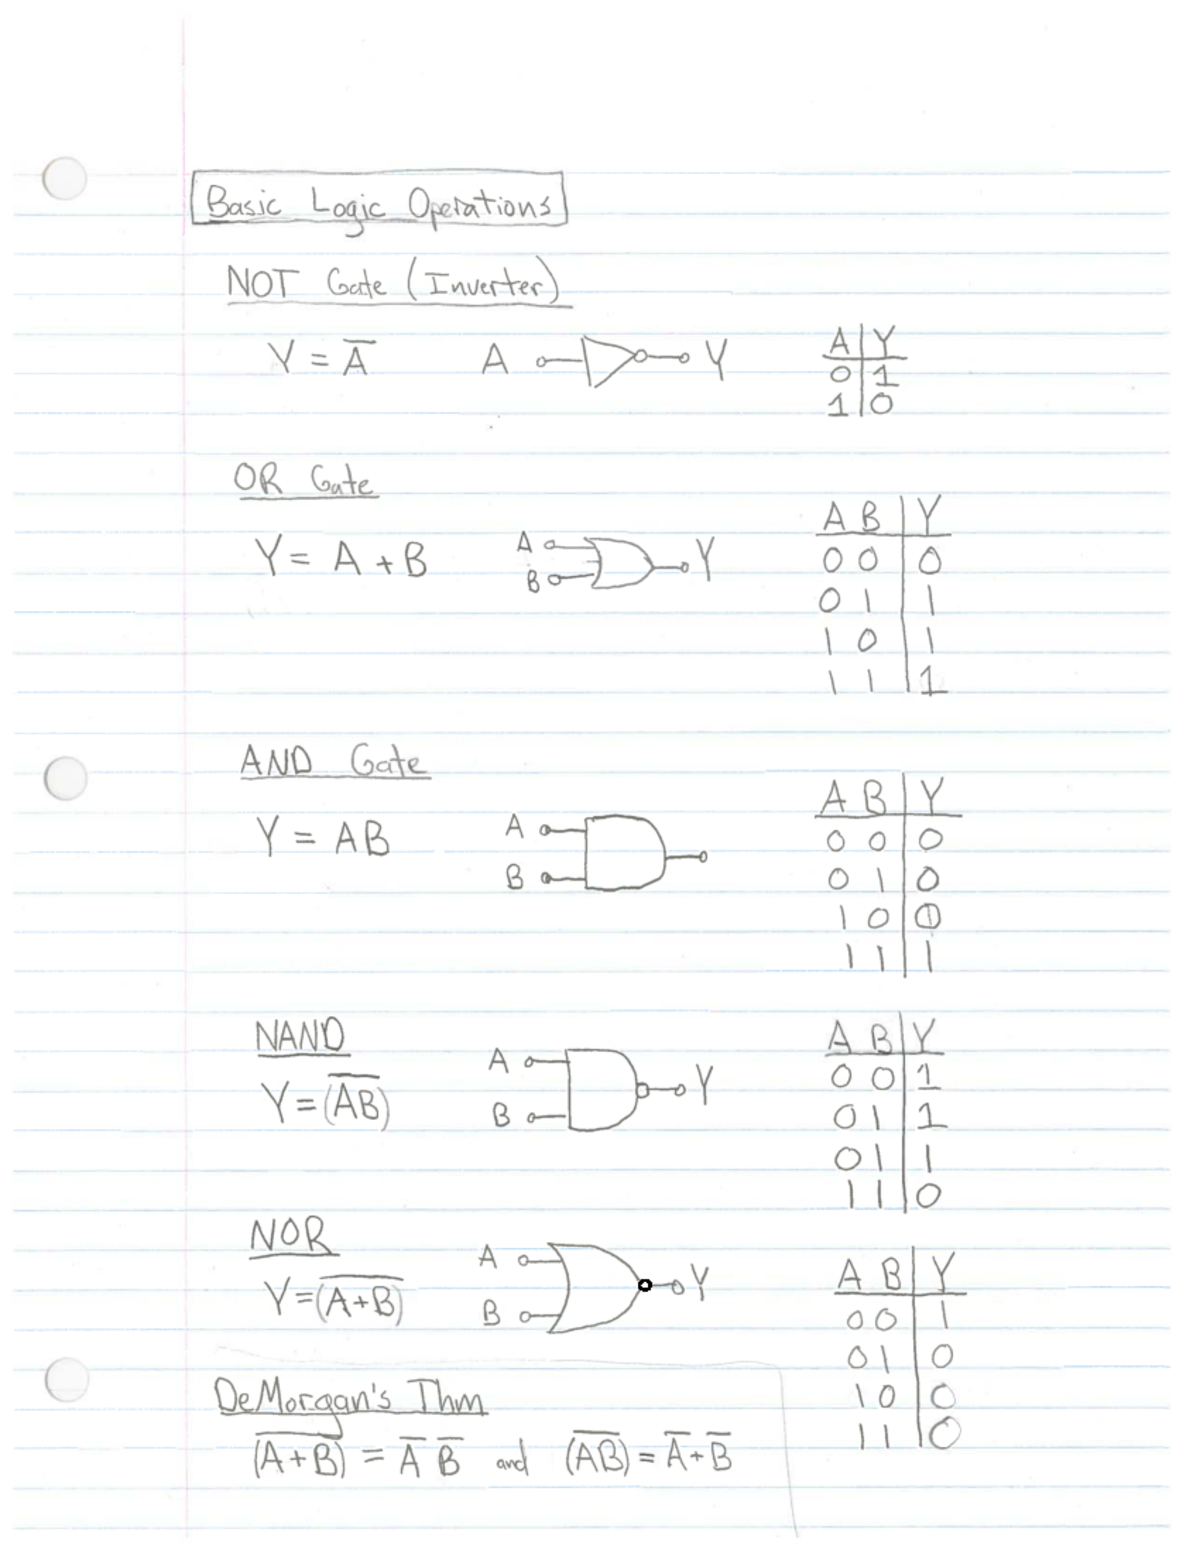 Basic Logic Operations
NOT Gate (Inverter)
Y = A̅
A Y
A Y
0 1
1 0
OR Gate
Y = A + B
A
B
Y
A B Y
0 0 0
0 1 1
1 0 1
1 1 1
AND Gate
Y = AB
A
B
A B Y
0 0 0
0 1 0
1 0
1 1 1
NAND
Y = (A̅B̅)
A
B
Y
A B Y
0 0 1
0 1 1
0 1 1
1 1 0
NOR
Y = (A̅+̅B̅)
A
B
Y
A B Y
0 0 1
0 1 0
1 0 0
1 1 0
DeMorgan's Thm
(A̅+̅B̅) = A̅ B̅ and (A̅B̅) = A̅ + B̅